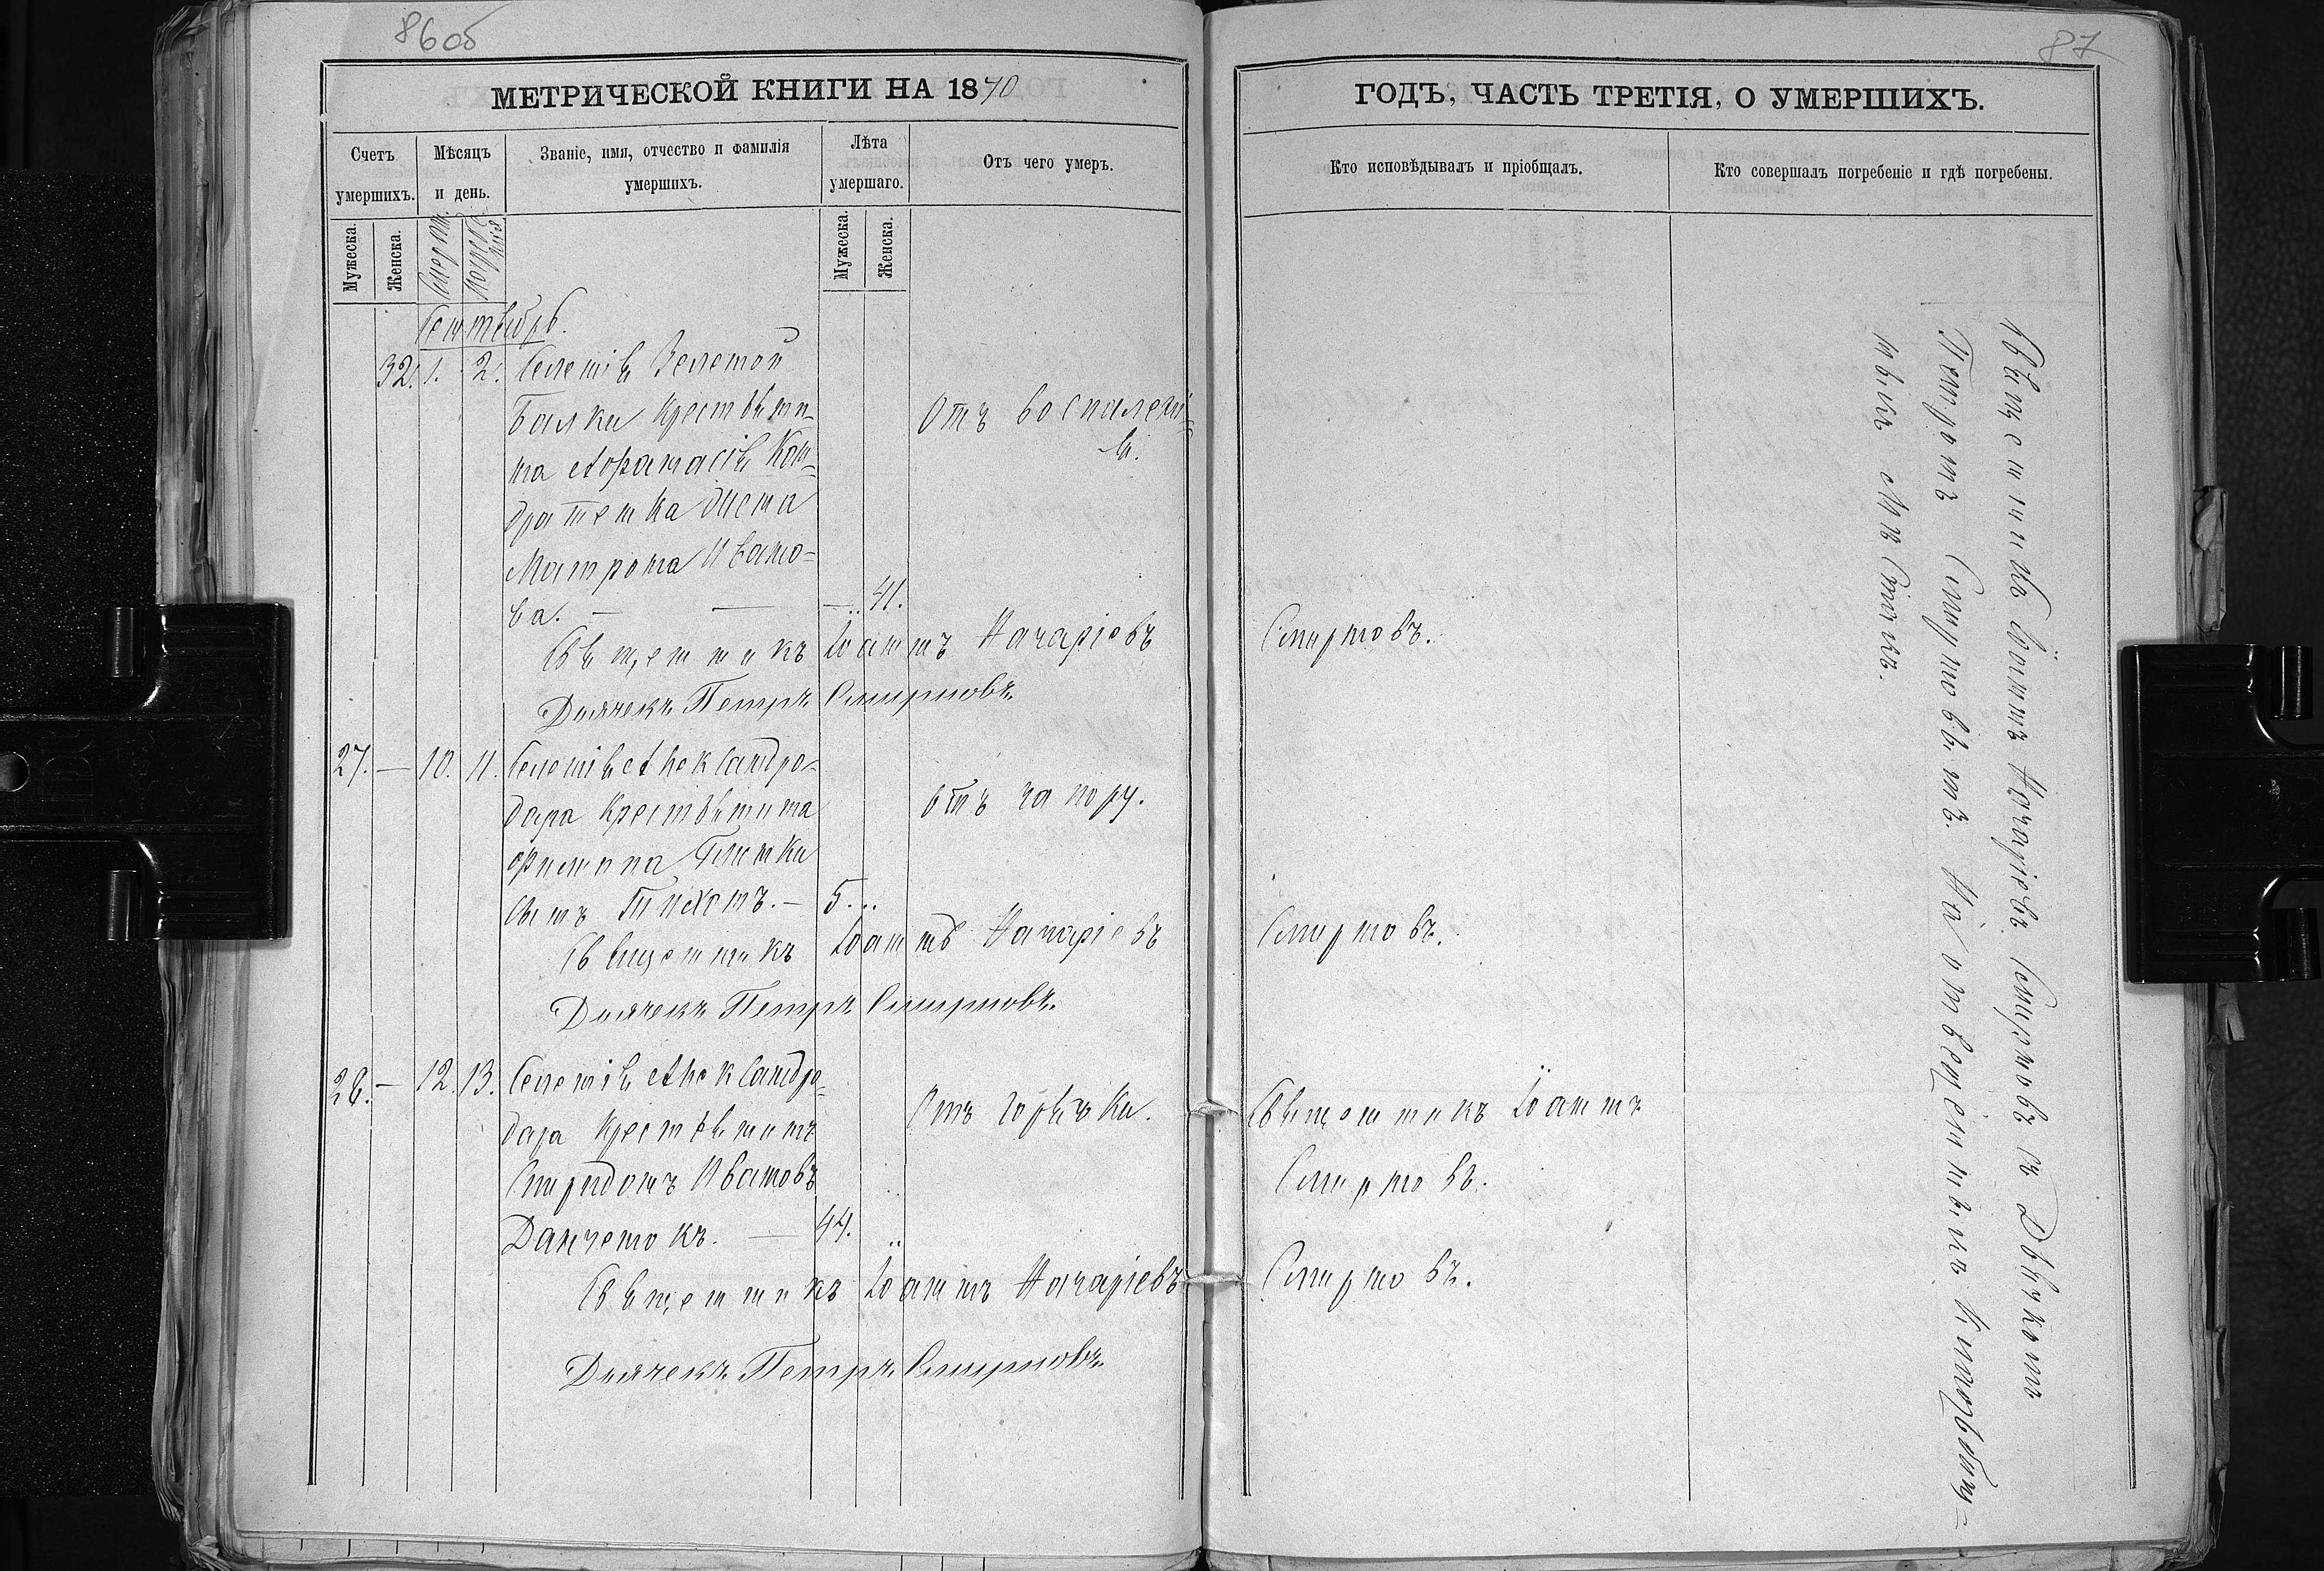 86 об
МЕТРИЧЕСКОЙ КНИГИ НА 1870
Счетъ умершихъ.
Мѣсяцъ и день.
Званіе, имя, отчество и фамилія умершихъ.
Лѣта умершаго.
Отъ чего умеръ.
Мужеска.
Женска.
Смерти.
Погребенія
Мужеска.
Женска.
Сентябрь.
32. 1. 2. Селенія Зеленой
Балки крестьяни-
на Афанасія Кон-
дратенка жена
Матрона Ивано-
ва. — — —.. 41.
Отъ воспалені-
я.
Священникъ Іоаннъ Назаріевъ Смирновъ.
Дьячекъ Петръ Смирновъ.
27. — 10. 11. Селенія Александро-
дара крестьянина
Филиппа
сынъ Тихонъ. — 5...
отъ запору.
Священникъ Іоаннъ Назаріевъ Смирновъ.
Дьячекъ Петръ Смирновъ.
28. — 12. 13. Селенія Александро-
дара крестьянинъ
Спиридонъ Ивановъ
Данченокъ. — 44. ..
Отъ горячки.
Священникъ Іоаннъ Назаріевъ Смирновъ.
Дьячекъ Петръ Смирновъ.
87
ГОДЪ, ЧАСТЬ ТРЕТІЯ, О УМЕРШИХЪ.
Кто исповѣдывалъ и пріобщалъ.
Кто совершалъ погребеніе и гдѣ погребены.
Священникъ Іоаннъ
Смирновъ.
Священникъ Іоаннъ Назаріевъ Смирновъ съ Дьячкомъ
Петромъ Смирновымъ. На отведенномъ